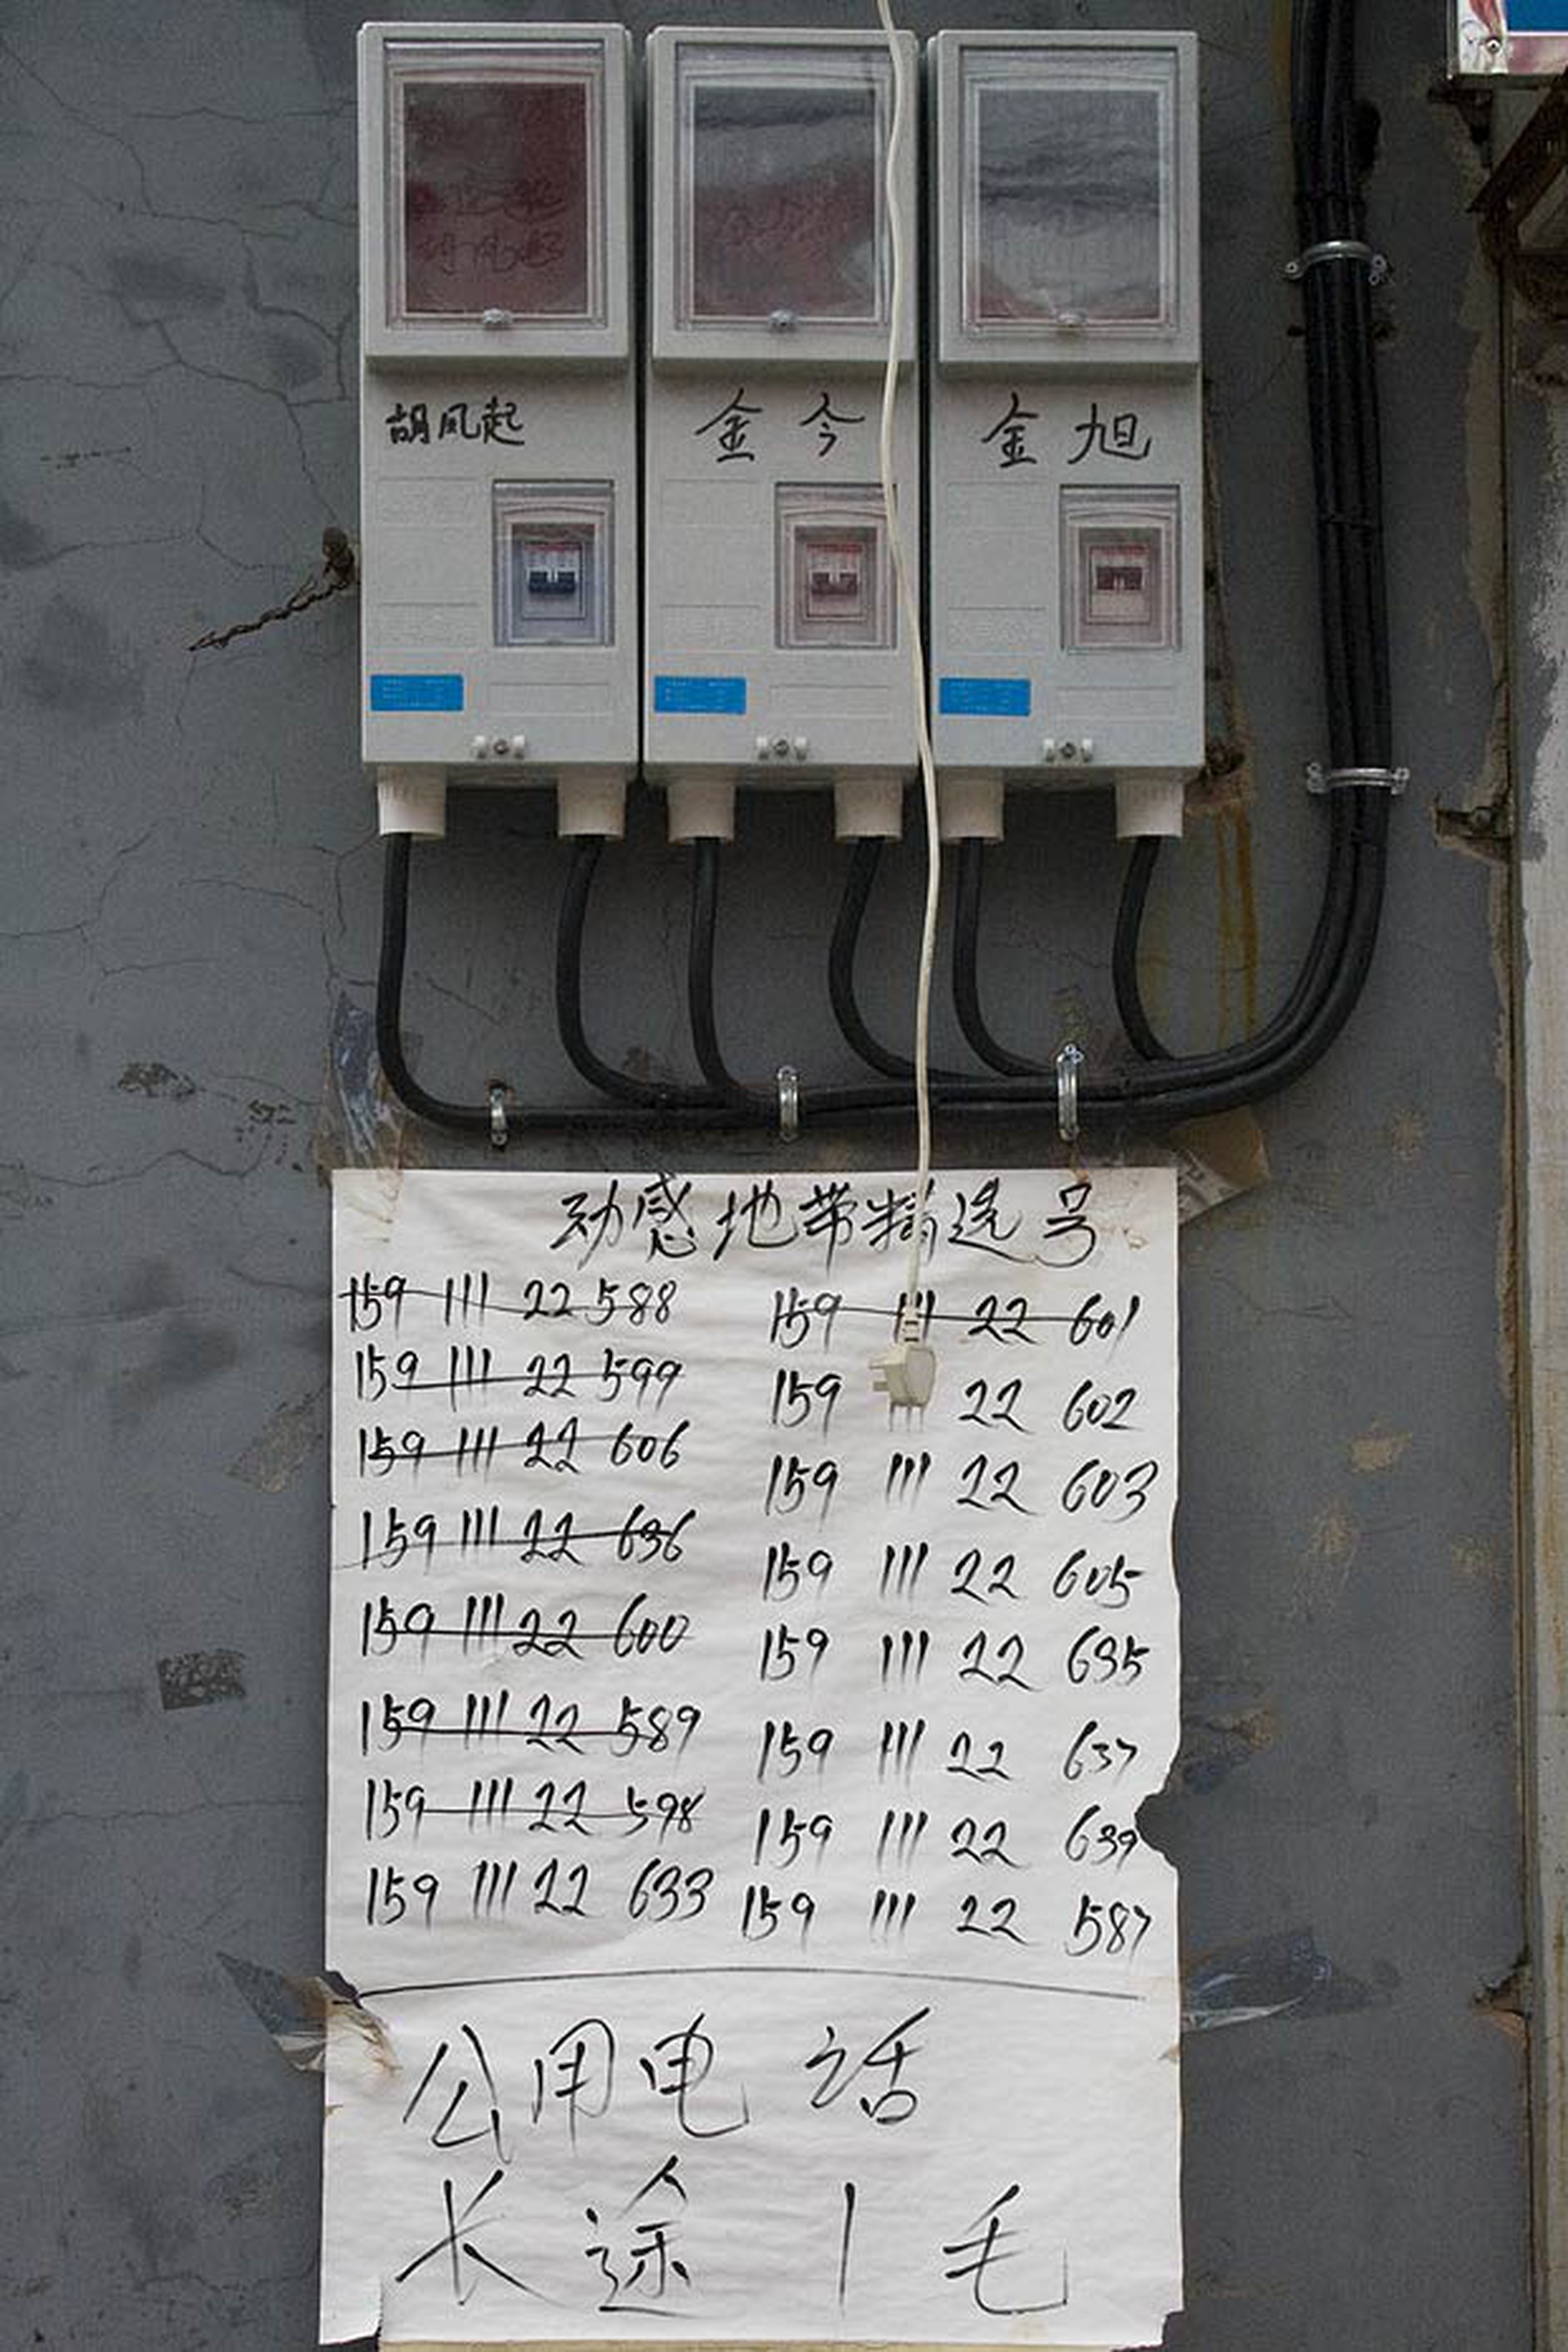 胡风起
金今
金旭
动感地带精选号
159 111 22 588
159 111 22 599
159 111 22 606
159 111 22 636
159 111 22 600
159 111 22 589
159 111 22 598
159 111 22 633
159 111 22 601
159 22 602
159 111 22 603
159 111 22 605
159 111 22 635
159 111 22 637
159 111 22 639
159 111 22 587
公用电话
长途1毛